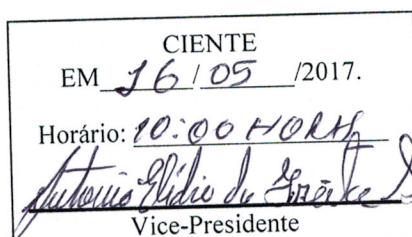 CIENTE
EM 16 / 05 /2017.
Horário: 10:00 HORA
Antonio Elidio de
Vice-Presidente